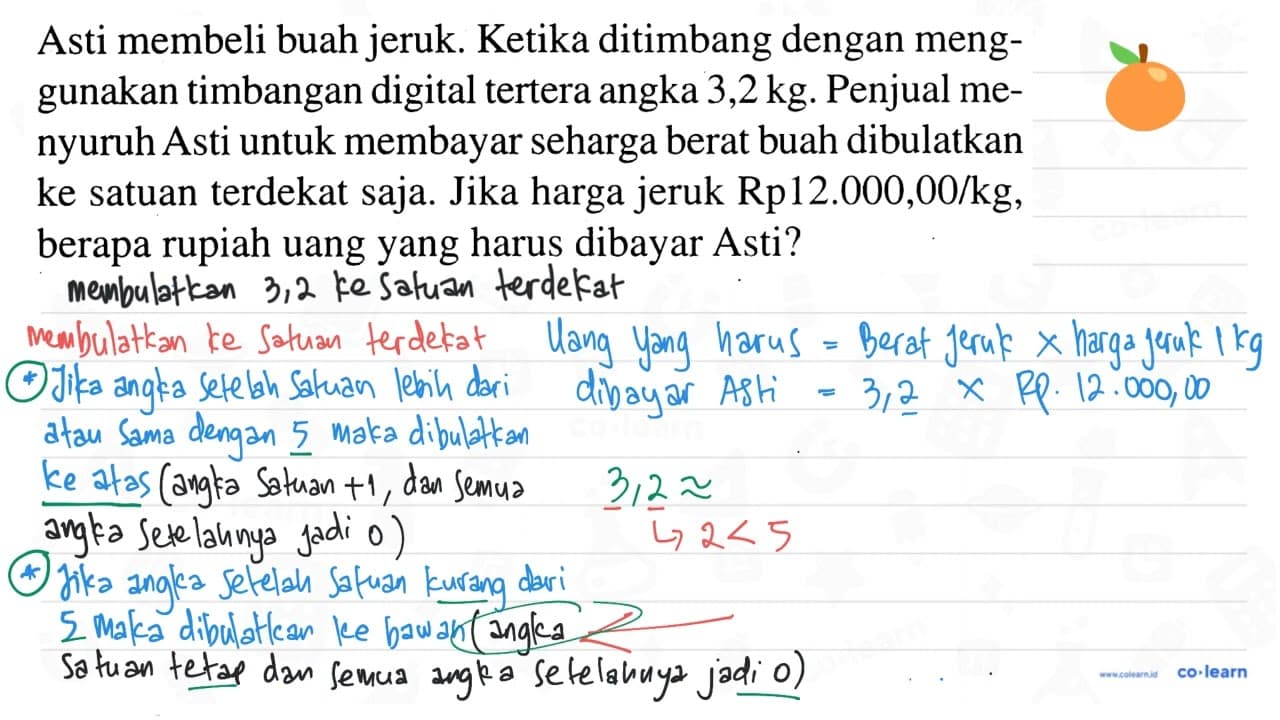 Asti membeli buah jeruk. Ketika ditimbang dengan meng-
gunakan timbangan digital tertera angka 3,2 kg. Penjual me-
nyuruh Asti untuk membayar seharga berat buah dibulatkan
ke satuan terdekat saja. Jika harga jeruk Rp12.000,00/kg,
berapa rupiah uang yang harus dibayar Asti?
membulatkan 3,2 ke satuan terdekat
membulatkan ke satuan terdekat
* Jika angka setelah satuan lebih dari
atau sama dengan 5 maka dibulatkan
ke atas (angka satuan +1, dan semua
angka setelahnya jadi 0)
* Jika angka setelah satuan kurang dari
5 maka dibulatkan ke bawah (angka
satuan tetap dan semua angka setelahnya jadi 0)
Uang yang harus = Berat jeruk × harga jeruk 1 kg
dibayar Asti = 3,2 × Rp. 12.000,00
3,2 ≈
↳ 2 < 5
www.colearn.id co·learn